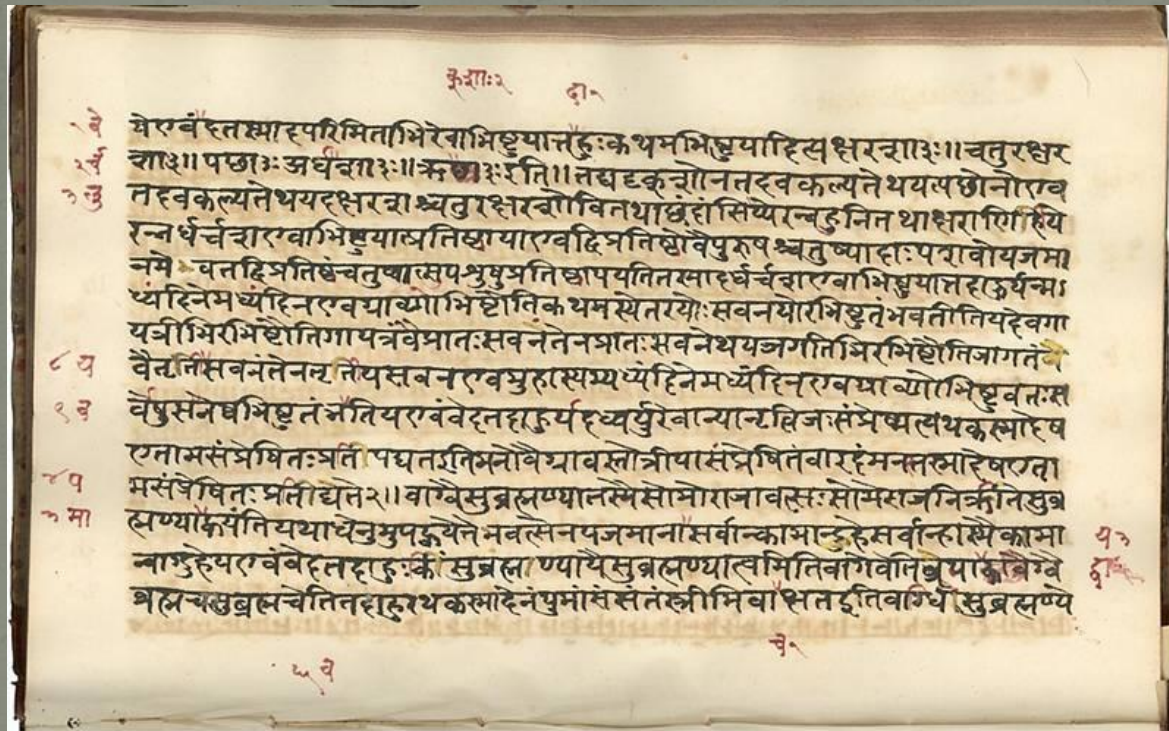 कृशाः२ दा२
२वे
२र्च
३नु
येएवंवेदतस्मादपरिमिताभिरेवाभिष्टुयात्तदाहुःकथमभिष्टुयादित्यक्षरशा३ः॥चतुरक्षर
शा३ः॥पछा३ः॥अर्धर्चशा३ः॥ऋक्शा३ःइति॥तद्यदृक्शोनतदवकल्पतेथयत्पछोनोएव
तदवकल्पतेथयदक्षरशश्चतुरक्षरशोवितथाछंदांसिलुप्येरन्बहूनितथाक्षराणिहीये
रन्नर्धर्चशएवाभिष्टुयात्प्रतिष्ठायाएवद्विप्रतिष्ठोवैपुरुषश्चतुष्पादाःपशवोयजमा
नमेवतद्विप्रतिष्ठंचतुष्पात्सुपशुषुप्रतिष्ठापयतितस्मादर्धर्चशएवाभिष्टुयात्तदाहुर्यन्म
ध्यंदिनेमध्यंदिनएवग्राव्णोभिष्टौतिकथमस्येतरयोःसवनयोरभिष्टुतंभवतीतियदेवगा
यत्रीभिरभिष्टौतिगायत्रंवैप्रातःसवनंतेनप्रातःसवनेथयजगतीभिरभिष्टौतिजागतं
८य
वैतृतीयसवनंतेनतृतीयसवनएवमुहास्यमध्यंदिनेमध्यंदिनएवग्राव्णोभिष्टुवतःस
९वे
र्वेषुसवनेष्वभिष्टुतंभवतियएवंवेदतदाहुर्यदध्वर्युरेवान्यानृत्विजःसंप्रेष्यत्यथकस्मादेष
एतामसंप्रेषितःप्रतिपद्यतइतिमनोवैग्रावस्तोत्रीयासंप्रेषितंवाइदंमनस्तस्मादेषएता
४प
मसंप्रेषितःप्रतिपद्यते२॥वाग्वैसुब्रह्मण्यातस्यैसोमोराजावत्सःसोमेराजनिक्रीतेसुब्र
३मा
ह्मण्यामाह्वयंतियथाधेनुमुपह्वयेत्तेनवत्सेनयजमानायसर्वान्कामान्दुहेसर्वान्हास्मैकामा
य३
न्वाग्दुहेयएवंवेदतदाहुःकिंसुब्रह्मण्यायैसुब्रह्मण्यात्वमितिवागेवेतिब्रूयाद्वाग्वै
ब्रह्मचसुब्रह्मचेतितदाहुरथकस्मादेनंपुमांसंसंतंस्त्रीमिवाचक्षतइतिवाग्घिसुब्रह्मण्ये
च२